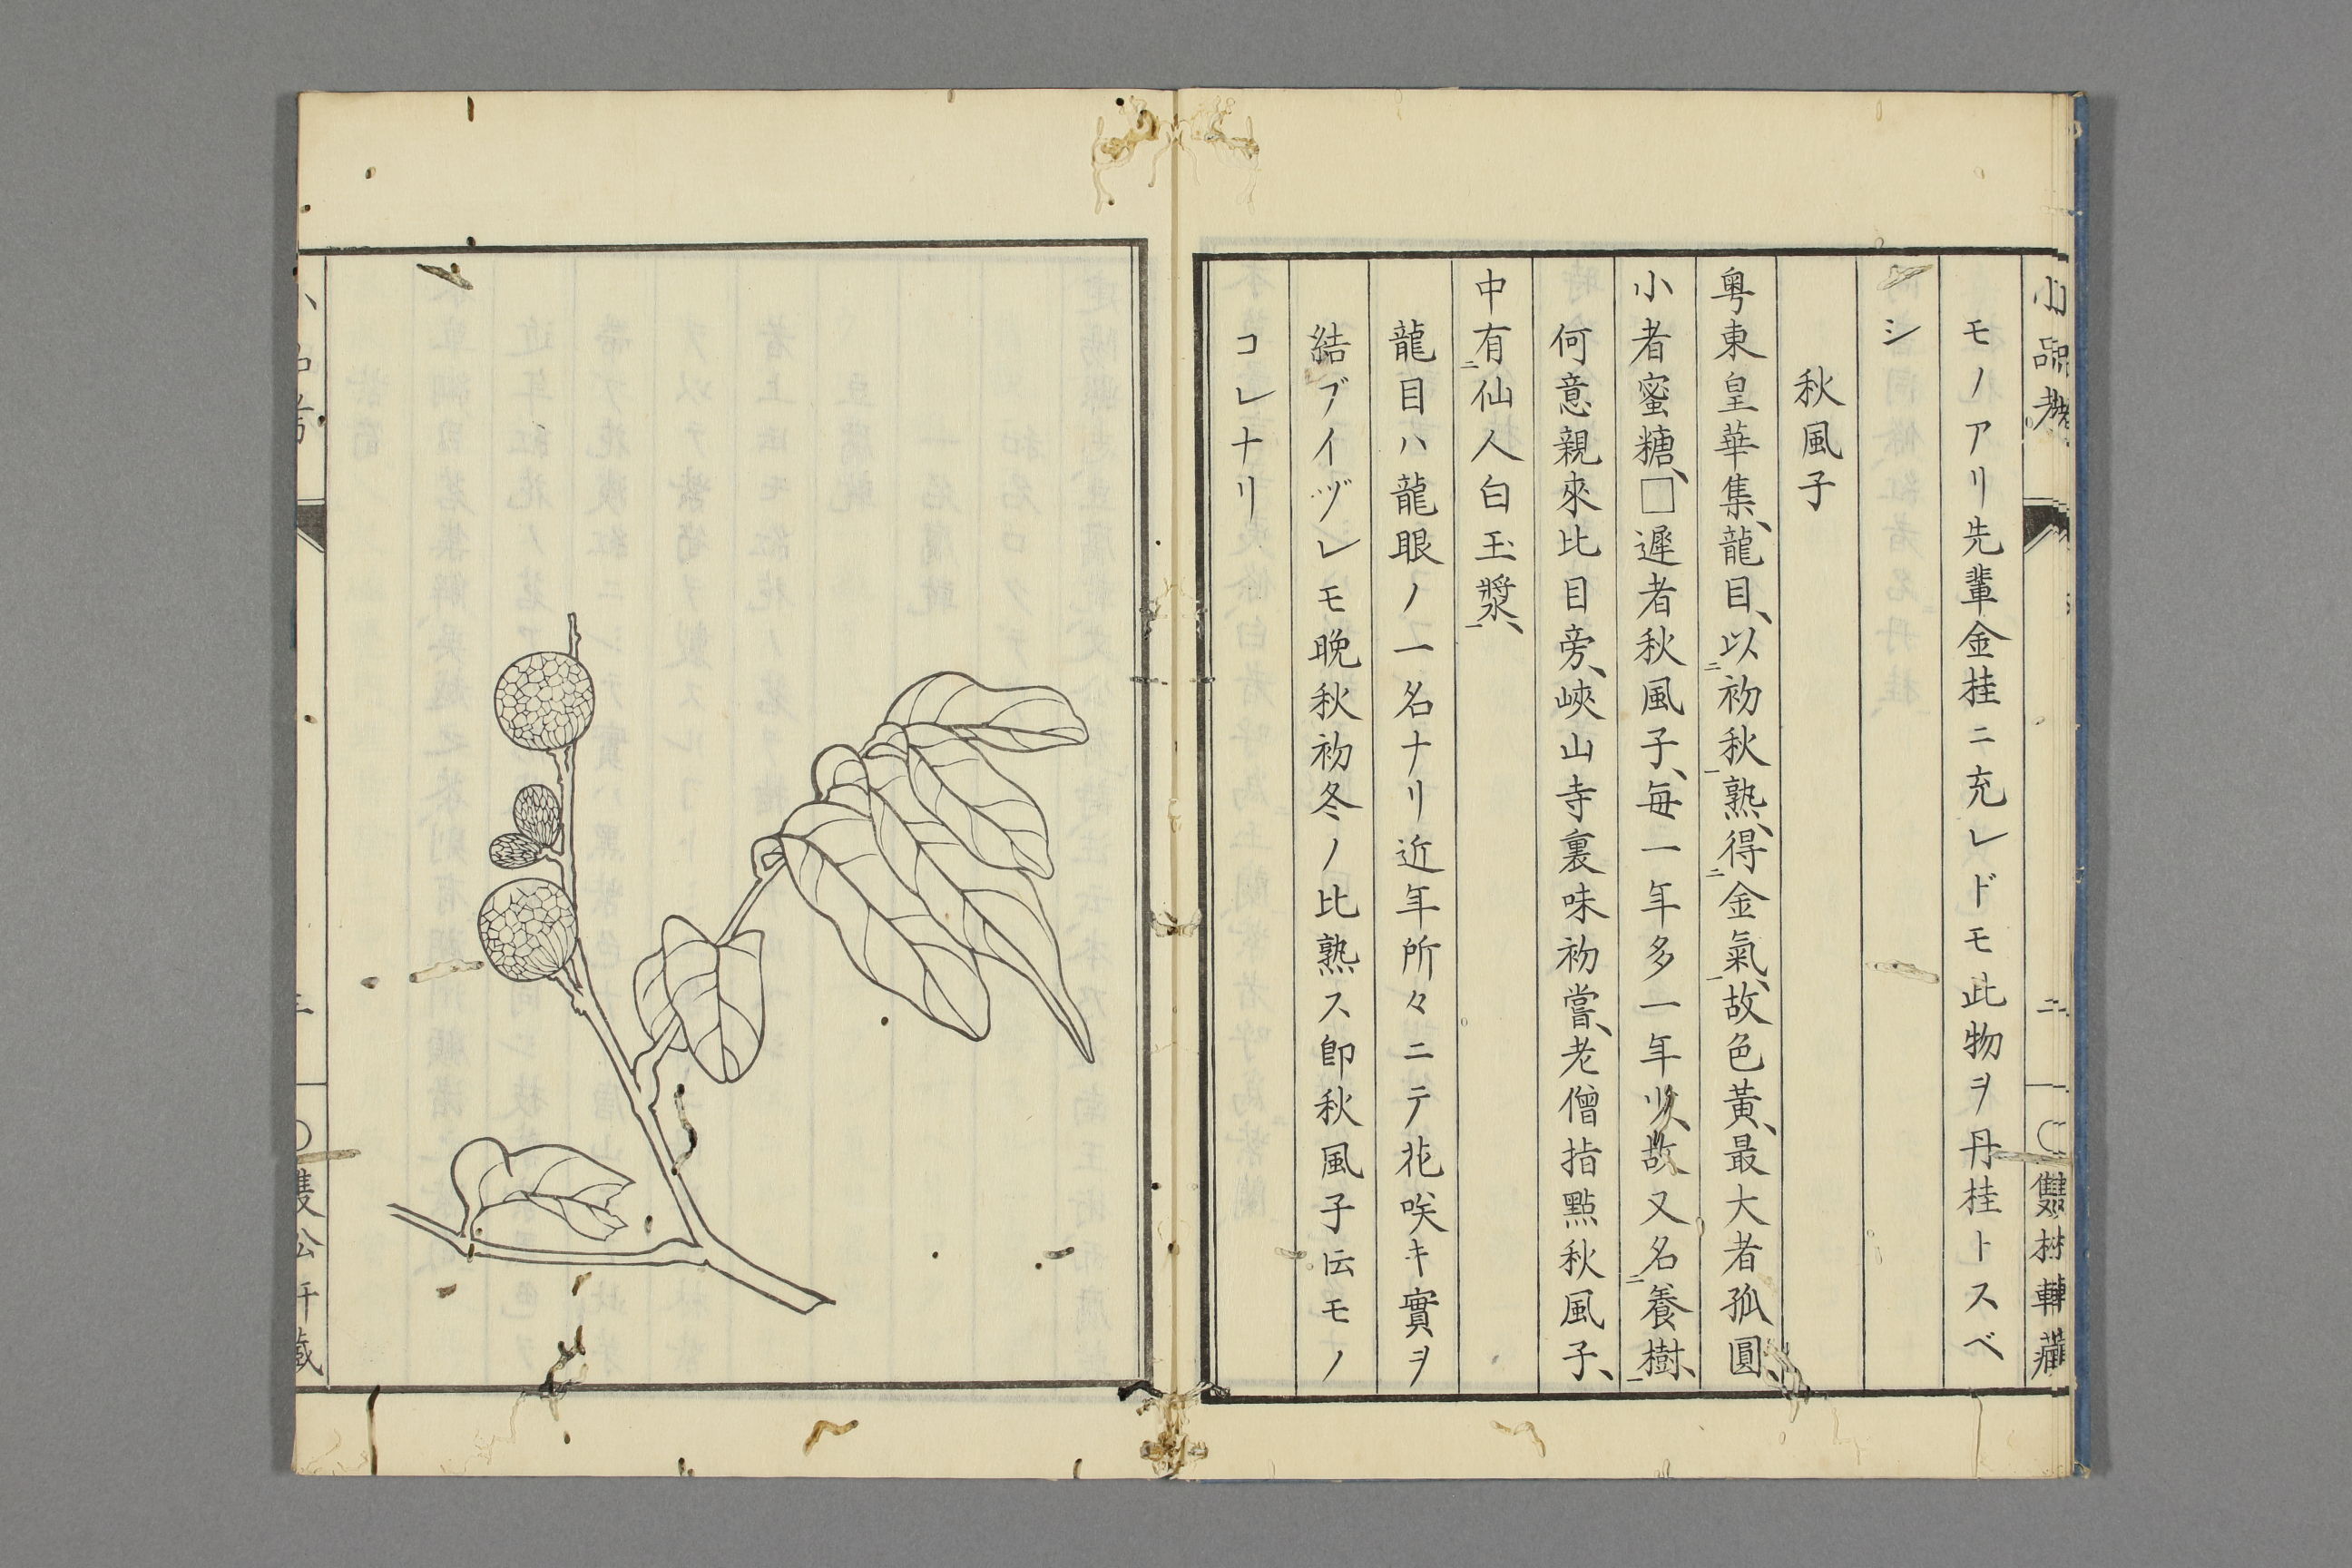 小品考
二
雙松軒藏
モノアリ先輩金桂ニ充レドモ此物ヲ丹桂トスベ
シ
秋風子
粤東皇華集、龍目、以初秋熟、得金氣、故色黃、最大者孤圓、
小者蜜糖、□遲者秋風子、每一年多一年少、故又名養樹、
何意親來比目旁、峽山寺裏味初嘗、老僧指點秋風子、
中有仙人白玉漿、
龍目ハ龍眼ノ一名ナリ近年所々ニテ花咲キ實ヲ
結ブイヅレモ晩秋初冬ノ比熟ス卽秋風子伝モノ
コレナリ